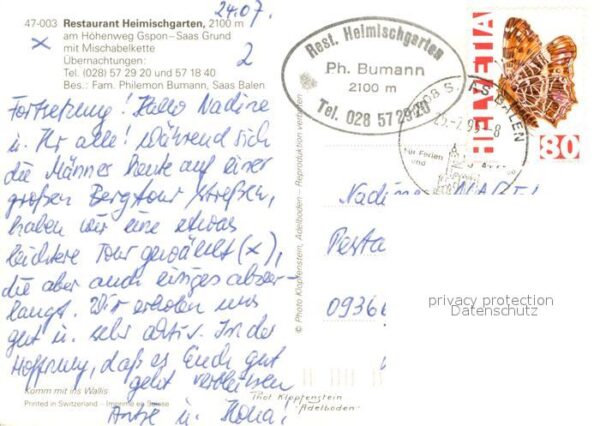 24.07.
47-003 Restaurant Heimischgarten, 2100 m
am Höhenweg Gspon–Saas Grund
mit Mischabelkette
Übernachtungen:
Tel. (028) 57 29 20 und 57 18 40
Bes.: Fam. Philemon Bumann, Saas Balen
x
2
Fortsetzung! Hallo Nadine
u. Ihr alle! Während sich
die Männer heute auf einer
großen Bergtour stressen,
haben wir eine etwas
leichtere Tour gewählt (x),
die aber auch einiges abver-
langt. Wir erholen uns
gut u. sehr aktiv. In der
Hoffnung, daß es Euch gut
geht verbleiben
Antje u. Ilona!
Komm mit ins Wallis
Printed in Switzerland – Imprimé en Suisse
© Photo Klopfenstein, Adelboden – Reproduktion verboten
Phot Klopfenstein
Adelboden
Rest. Heimischgarten
Ph. Bumann
2100 m
Tel. 028 57 29 20
BALEN
für Ferien
und
HELVETIA
80
Nadine
Pesta
0936
privacy protection
Datenschutz